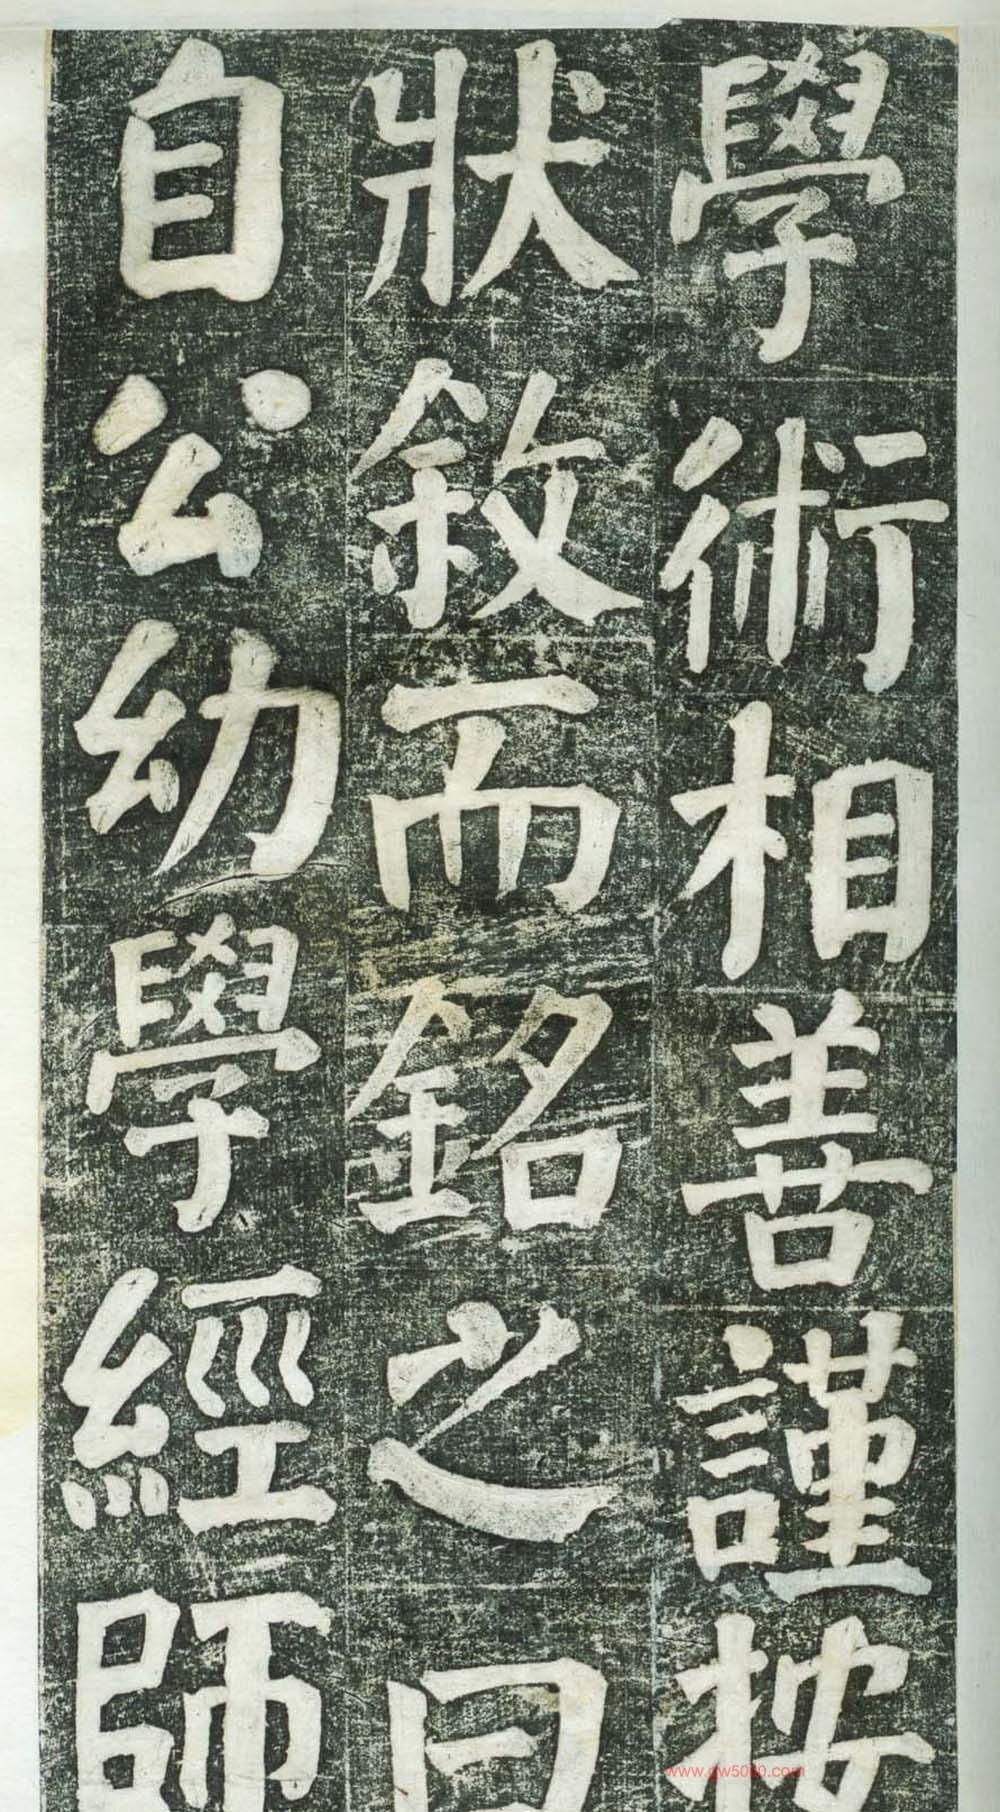 學術相善謹按
狀敘而銘之曰
自公幼學經師
www.gw5000.com